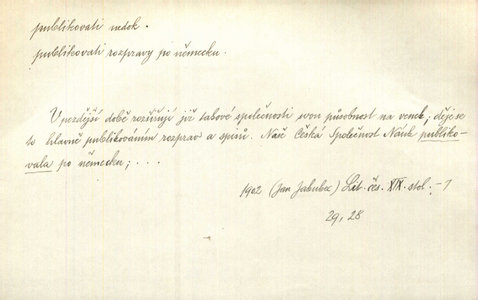 publikovati nedok.
publikovati rozpravy po německu.
V pozdější době rozšiřují již takové společnosti svou působnost na venek; děje se
to hlavně publikováním rozprav a spisů. Naše Česká Společnost Nauk publiko-
vala po německu; . . .
1902 (Jan Jakubec) Lit. čes. XIX. stol. - 1
29, 28